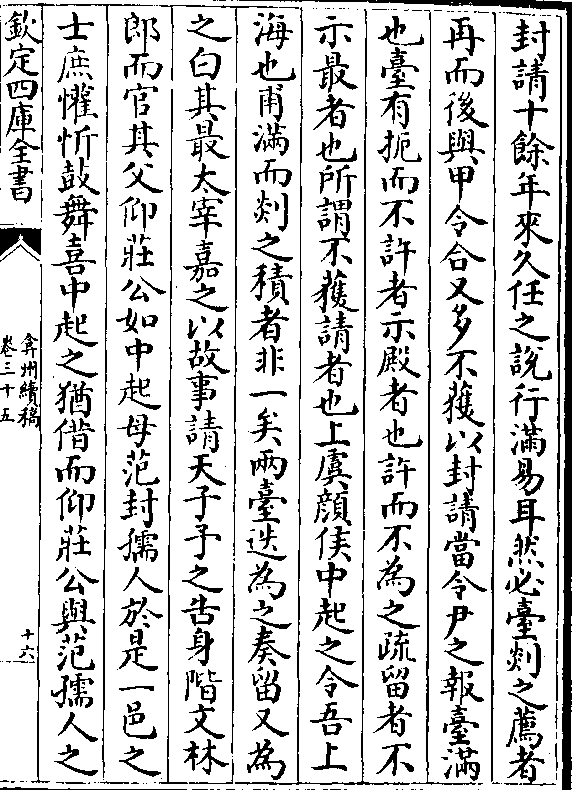 封請十餘年來久任之說行滿易耳然必臺剡之薦者
再而後與甲令合又多不獲以封請當令尹之報臺滿
也臺有扼而不許者示殿者也許而不為之疏留者不
示最者也所謂不獲請者也上虞顔侯中起之令吾上
海也甫滿而剡之積者非一矣兩臺迭為之奏留又為
之白其最太宰嘉之以故事請天子予之告身階文林
郎而官其父仰莊公如中起母范封孺人於是一邑之
士庶懽忻鼓舞喜中起之猶借而仰莊公與范孺人之
欽定四庫全書
弇州續稿
卷三十五
十六